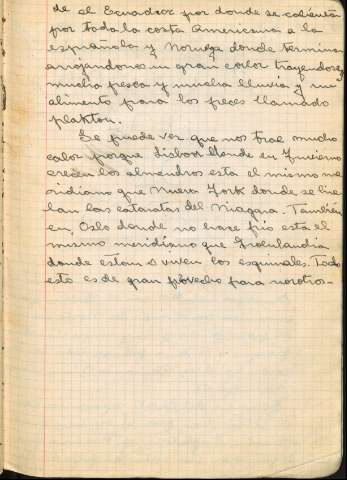 de el Ecuador por donde se calienta
por toda la costa Americana a la
española y Noruega donde termina
arrojandonos un gran calor trayendonos
mucha pesca y mucha lluvia y un
alimento para los peces llamado
plakton.
Se puede ver que nos trae mucho
calor porque Lisboa donde en Invierno
crecen los almendros esta el mismo me
ridiano que Nueva York donde se hie
lan las cataratas del Niagara. También
en Oslo donde no hace frio esta el
mismo meridiano que Groelandia
donde estan o viven los esquimales. Todo
esto es de gran provecho para nosotros-